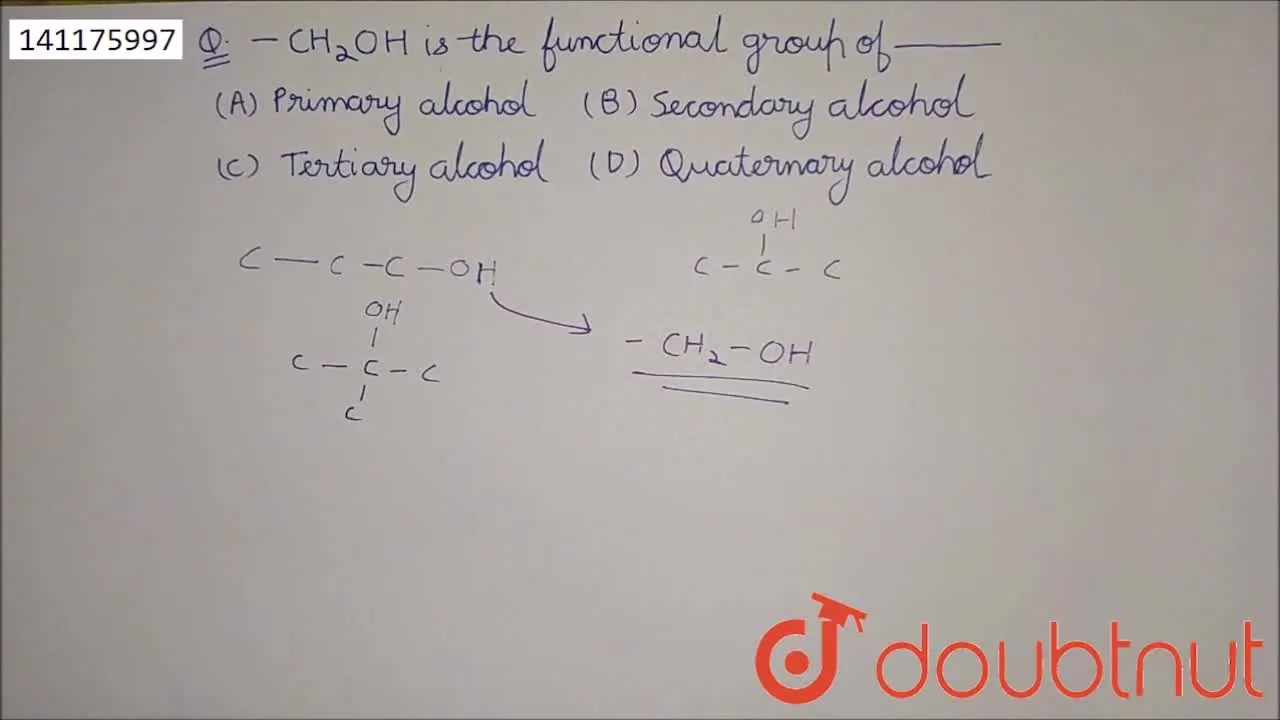 141175997 Q. – CH2OH is the functional group of ———
(A) Primary alcohol (B) Secondary alcohol
(C) Tertiary alcohol (D) Quaternary alcohol
OH
C — C – C – OH
C – C – C
OH
– CH2 – OH
C – C – C
C
doubtnut